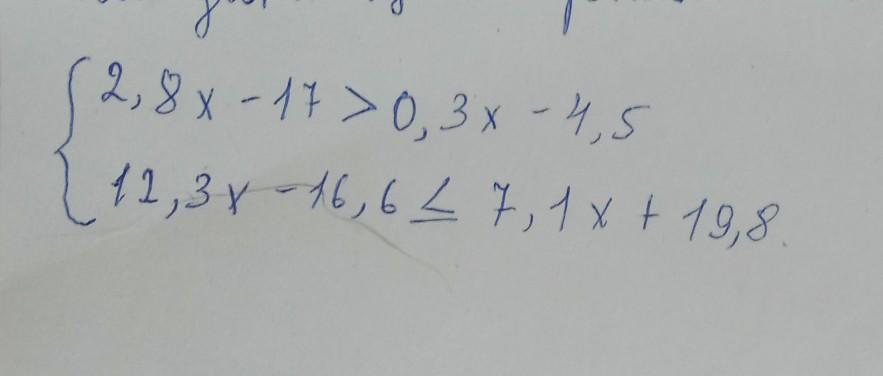 2,8x - 17 > 0,3x - 4,5
12,3x - 16,6 ≤ 7,1x + 19,8.